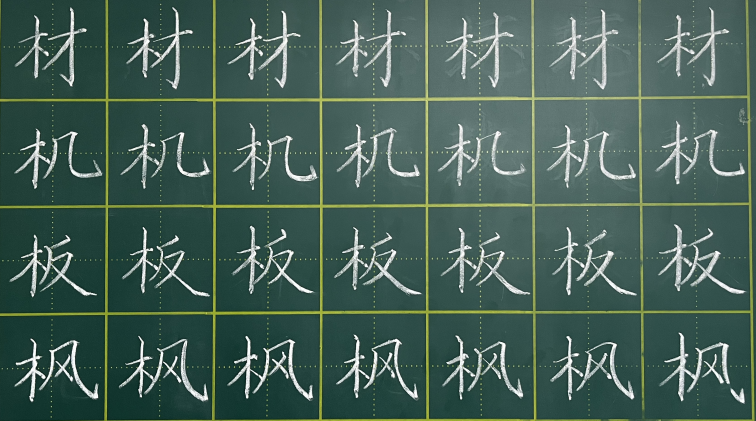 材材材材材材材
机机机机机机机
板板板板板板板
枫枫枫枫枫枫枫